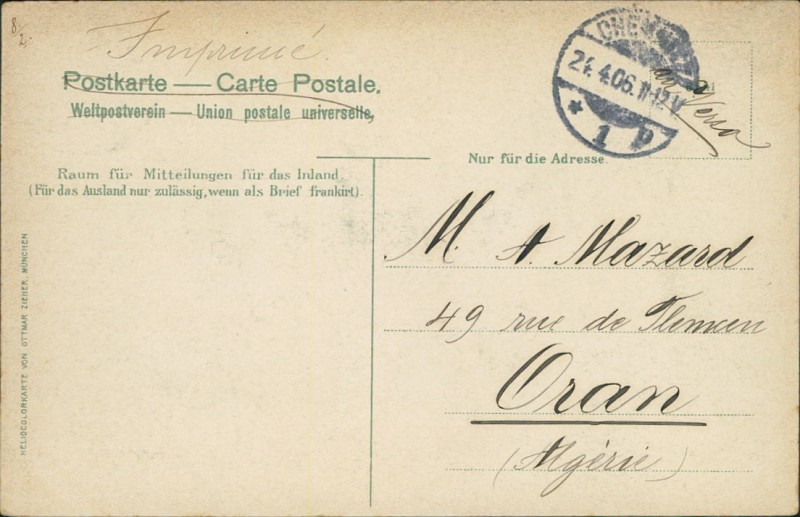 8/2.
Imprimé
Postkarte — Carte Postale.
Weltpostverein — Union postale universelle,
Raum für Mitteilungen für das Inland.
(Für das Ausland nur zulässig, wenn als Brief frankirt).
HELIOCOLORKARTE VON OTTMAR ZIEHER, MÜNCHEN
24.4.06. 11-12 V
* 1 P
au Verso
Nur für die Adresse.
M. A. Mazard
49 rue de Tlemcen
Oran
(Algérie)